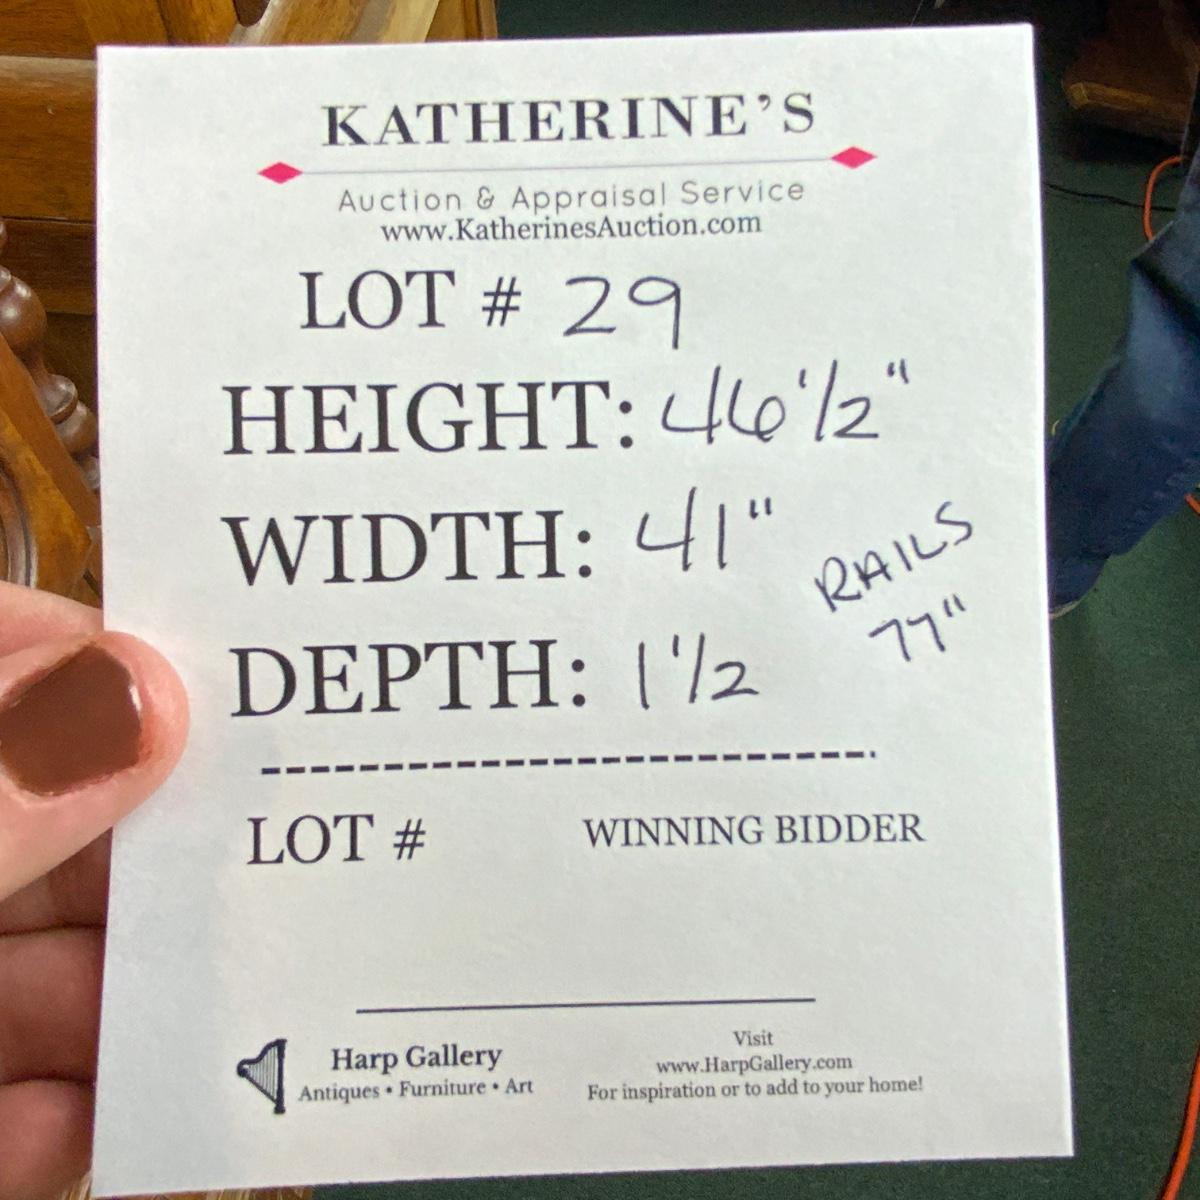 KATHERINE'S
Auction & Appraisal Service
www.KatherinesAuction.com
LOT # 29
HEIGHT: 46 1/2"
WIDTH: 41"
RAILS
77"
DEPTH: 1 1/2
LOT #
WINNING BIDDER
Harp Gallery
Antiques • Furniture • Art
Visit
www.HarpGallery.com
For inspiration or to add to your home!